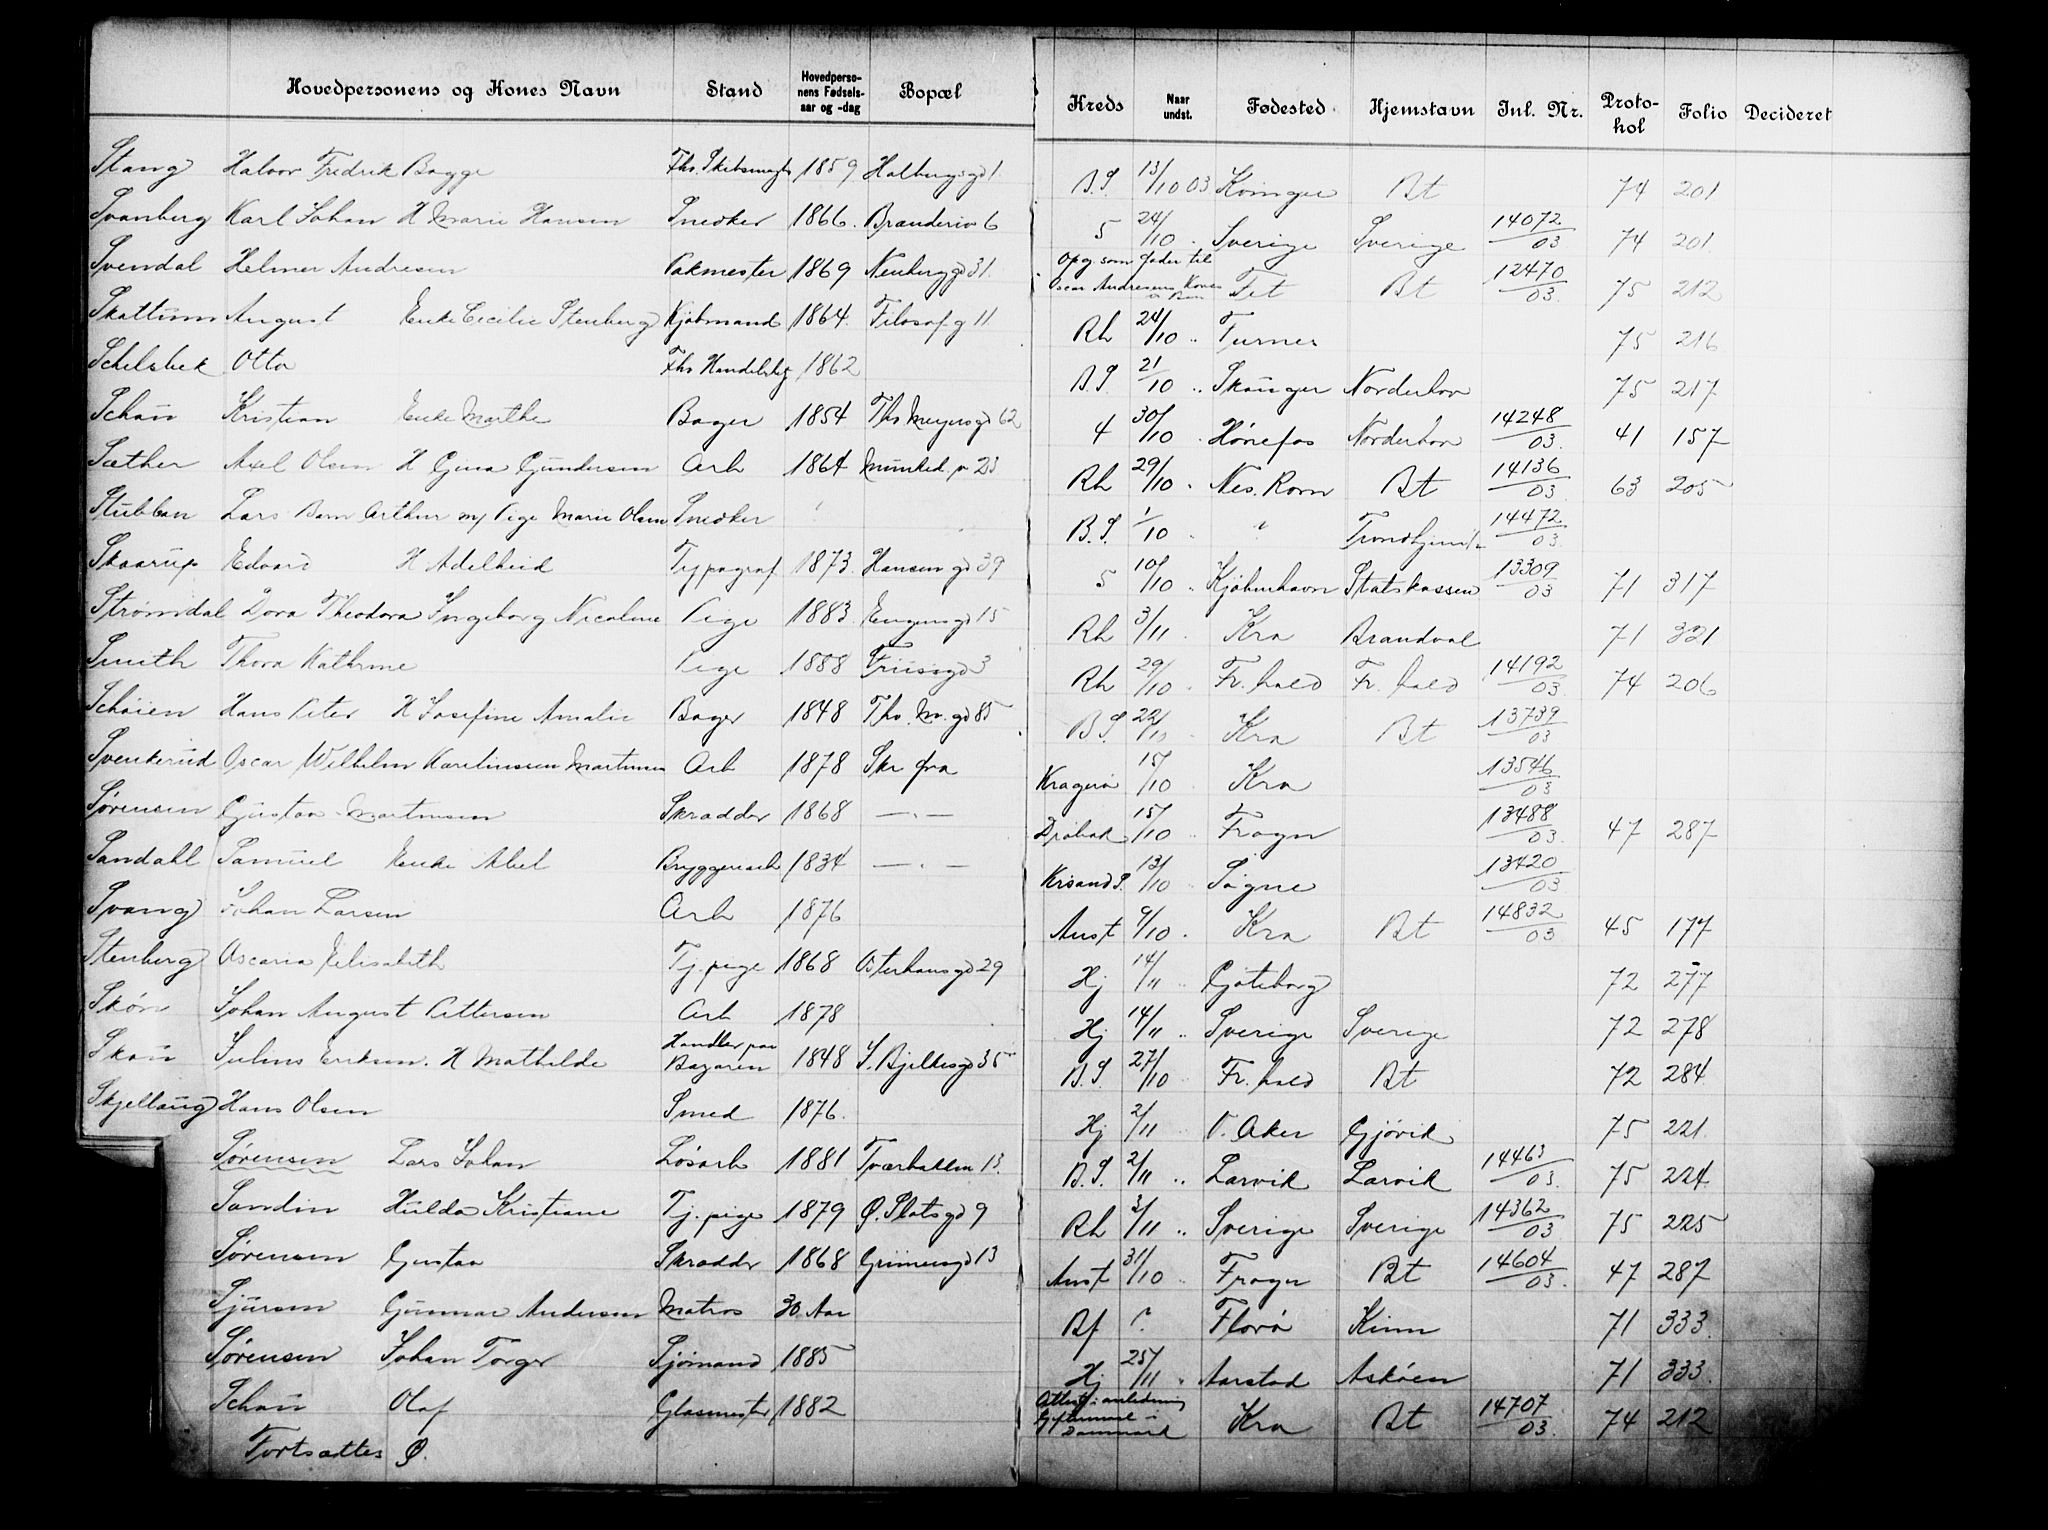 Hovedpersonens og Kones Navn Stand Hovedpersonens Fødselsaar og -dag Bopæl Kreds Naar undst. Fødested Hjemstavn Inl. Nr. Protokol Folio Decideret
Stang Halvor Fredrik Bagge Fhv. 1859 Holbergsgd 1 B.S. 13/10 03 Bt 74 201
Svanberg Karl Johan H Marie Hansen Snedker 1866. 6 5 24/10 Sverige Sverige 14072/03 74 201
Svendal Helmer Andresen Pakmester 1869 Neuberggd 31. Opg. som fader til Oscar Andresens Kones Fet Bt 12470/03. 75 212
Skattum August Enke Cecilie Stenberg Kjøbmand 1864. Filosof g 11 Rh 24/10 " Turnes 75 216
Schelsbek Otto Fhv Handelsbg 1862 B.S. 21/10 " Skouger Norderhov 75 217
Schou Kristian Enke Marthe Bager 1854 Ths Meyersgd 62 4 30/10 Hønefos Norderhov 14248/03. 41 157
Sæther Axel Olsen H Gina Gundersen Arb 1864 Munked. v 23 Rh 29/10 Nes. Rom Bt 14136/03 63 205
Stubban Lars Barn Arthur m/ Pige Marie Olsen Snedker B.S. 1/10 Trondhjem 14472/03
Skaarup Edvard H Adelheid Typograf 1873. Hansen gd 39 5 10/10 " Kjøbenhavn Statskassen 13309/03 71 317
Strømdal Dora Theodora Ingeborg Nicoline Pige 1883. Eugensgd 15 Rh 3/11 Kra Brandval 71 321
Smith Thora Kathrine Pige 1888 Friisgd 3 Rh 29/10 Fr. hald Fr. hald 14192/03 74 206
Schøien Hans Peter H Josefine Amalie Bager 1848 Ths. M. gd 85 B S 22/10 Kra Bt 13739/03
Svenkerud Oscar Wilhelm Karelinssen Martinsen Arb 1878 Skr fra Kragerø 15/10 Kra 13546/03
Sørensen Gustav Martinsen Skrædder 1868 — " — Drøbak 15/10 " Frogn 13488/03. 47 287
Sandahl Samuel Enke Abel Bryggeriarb 1834 — " — Krsand S. 13/10 " Søgne 13420/03
Svang Johan Larsen Arb 1876 Anst 9/10 . Kra Bt 14832/03 45 177
Stenberg Oscaria Elisabeth Tj. pige 1868 Osterhausgd 29 Hj 14/11 " Gjøteborg 72 277
Skön Johan August Pettersen Arb 1878 Hj 14/11 " Sverige Sverige 72 278
Skou Julius Eriksen. H Mathilde Handler paa Bazaren 1848 J. Bjelkesgd 35 B.S. 27/10 " Fr. hald Bt 72 284
Skjellaug Hans Olsen Smed 1876. Hj 2/11 V. Aker Gjøvik 75 221
Sørensen Lars Johan Løsarb 1881 Tværbakken 13. B.S. 2/11 " Larvik Larvik 14463/03. 75 224
Sandin Hulda Kristiane Tj. pige 1879 Ø. Slotsgd 9 Rh 3/11 " Sverige Sverige 14362/03 75 225
Sørensen Gustav Skrædder 1868 Grünersgd 13 Anst 31/10 " Frogn Bt 14604/03. 47 287
Sjursen Gunnar Andersen Matros 30 Aar Bf ?. Florø Kinn 71 333.
Sørensen Johan Torger Sjømand 1885 Hj 25/11 " Aarstad Askøen 71 333.
Schou Olaf Glasmester 1882 Attest i anledning Giftermaal i Danmark Kra Bt 14707/03. 74 212
Fortsættes Ø.